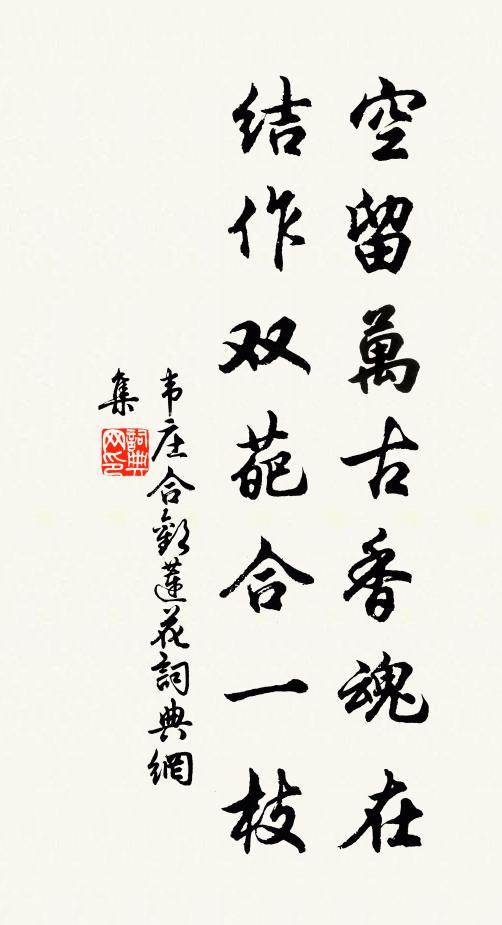 空留萬古香魂在
结作双葩合一枝
韦庄合歡蓮花詞典網
集
詞典
网印